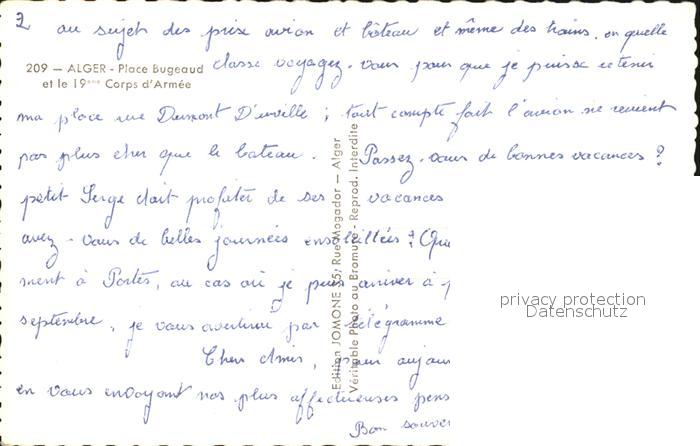 2 au sujet des prix avion et bâteau et même des trains. en quelle
209 — ALGER - Place Bugeaud
et le 19ème Corps d'Armée
classe voyagez-vous pour que je puisse retenir
ma place rue Dumont D'urville ; tout compte fait l'avion ne revient
pas plus cher que le bateau. Passez-vous de bonnes vacances ?
petit Serge doit profiter de ses vacances
avez-vous de belles journées ensoleillées ? (Qua
ment à Portes, au cas où je puis arriver à
septembre, je vous avertirai par télégramme
Chers Amis, pour aujour
en vous envoyant nos plus affectueuses pens
Bon souver
Edition JOMONE 35, Rue Mogador — Alger
Véritable Photo au Bromure - Reprod. Interdite
privacy protection
Datenschutz